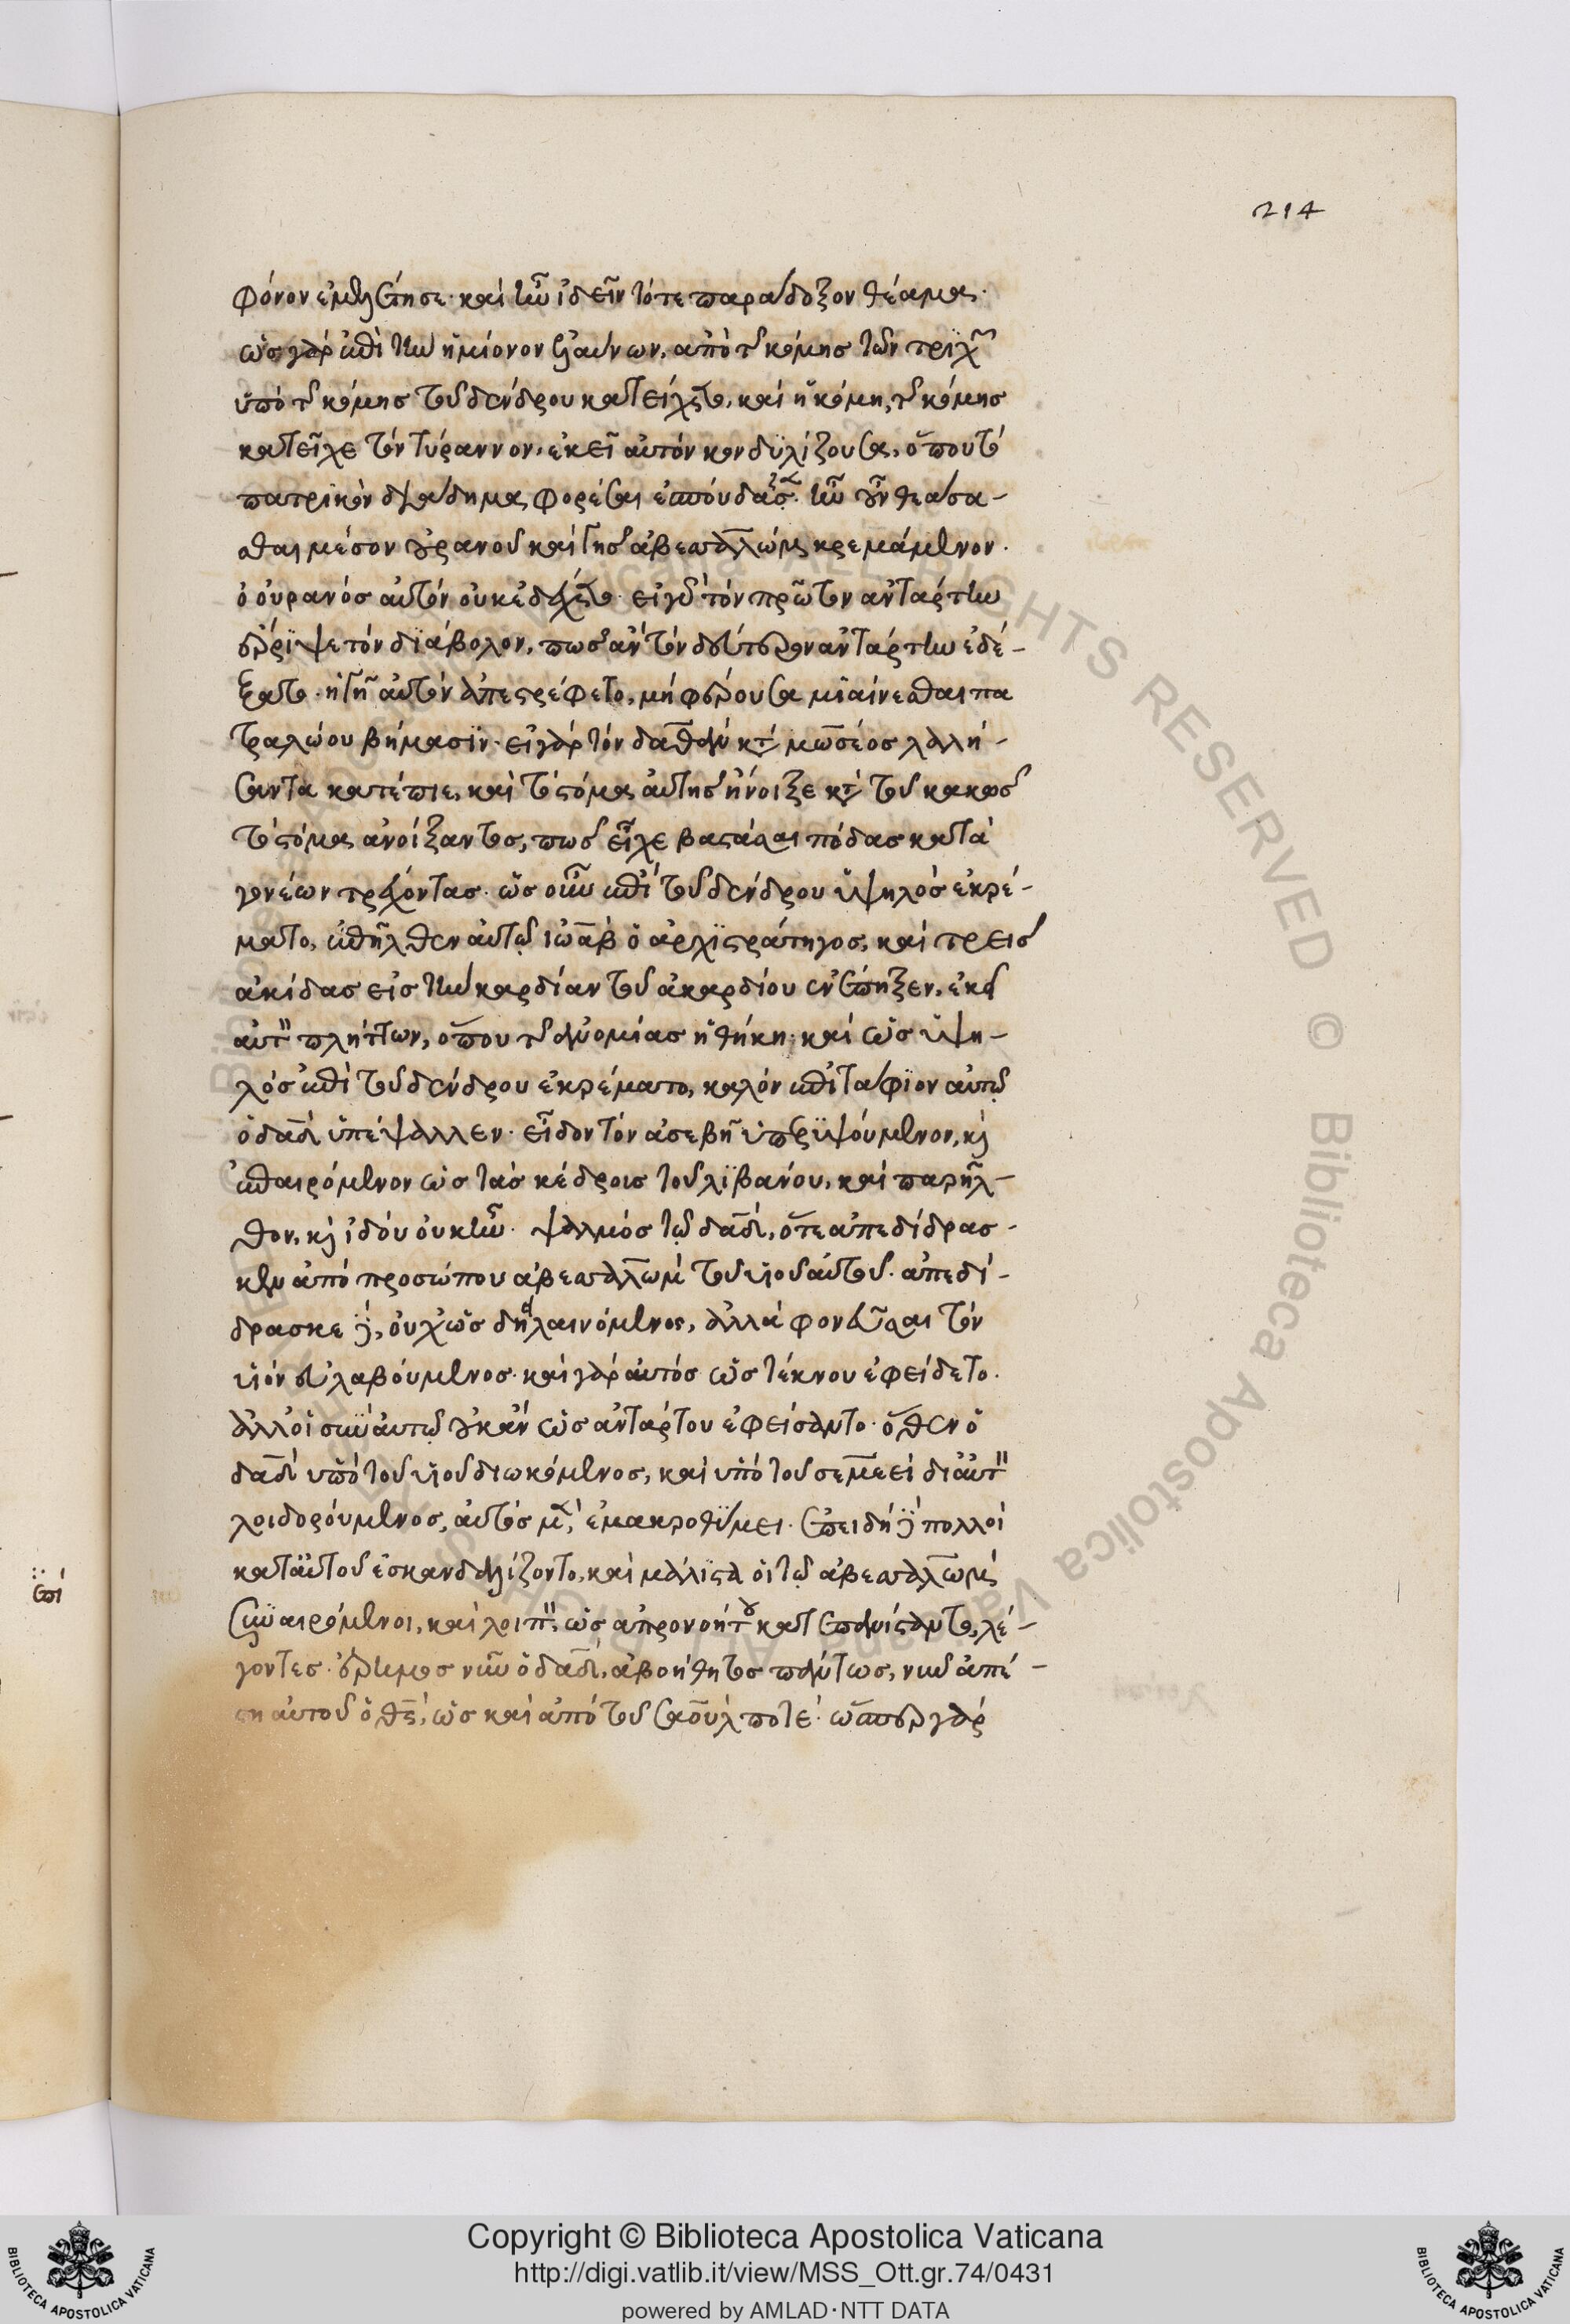 214
φόνον ἐμελέτησε· καὶ ἦν ἰδεῖν τότε παράδοξον θέαμα·
ὡς γὰρ ἐπὶ τὴν ἡμίονον ἐλαύνων, ἀπὸ τῆς κόμης τῶν τριχῶν
ὑπὸ τῆς κόμης τοῦ δένδρου κατείχετο, καὶ ἡ κόμη, τῆς κόμης
κατεῖχε τὸν τύραννον, ἐκεῖ αὐτὸν κονδυλίζουσα, ὅπου τὸ
πατρικὸν διάδημα φορέσαι ἐσπούδαζεν. ἦν οὖν θεάσα-
σθαι μέσον οὐρανοῦ καὶ γῆς ἀβεσαλὼμ κρεμάμενον.
ὁ οὐρανὸς αὐτὸν οὐκ ἐδέχετο· εἰ γὰρ τὸν πρῶτον ἀντάρτην
ἔρριψε τὸν διάβολον, πῶς ἂν τὸν δεύτερον ἀντάρτην ἐδέ-
ξατο· ἡ γῆ αὐτὸν ἀπεστρέφετο, μὴ φέρουσα μιαίνεσθαι πα
τραλώου βήμασιν· εἰ γὰρ τὸν δαθὰν κατὰ μωσέος λαλή-
σαντα κατέπιε, καὶ τὸ στόμα αὐτῆς ἤνοιξε κατὰ τοῦ κακῶς
τὸ στόμα ἀνοίξαντος, πῶς εἶχε βαστάσαι πόδας κατὰ
γονέων τρέχοντας· ὡς οὖν ἐπὶ τοῦ δένδρου ὑψηλὸς ἐκρέ-
ματο, ἐπῆλθεν αὐτῷ ἰωὰβ ὁ ἀρχιστράτηγος, καὶ τρεῖς
ἀκίδας εἰς τὴν καρδίαν τοῦ ἀκαρδίου ἐνέπηξεν, ἐκεῖ
αὐτὸν πλήττων, ὅπου τῆς ἀνομίας ἡ θήκη· καὶ ὡς ὑψη-
λὸς ἐπὶ τοῦ δένδρου ἐκρέματο, καλὸν ἐπιτάφιον αὐτῷ
ὁ δαδ ὑπέψαλλεν· εἶδον τὸν ἀσεβῆ ὑπερυψούμενον, καὶ
ἐπαιρόμενον ὡς τὰς κέδρους τοῦ λιβάνου, καὶ παρῆλ-
θον, καὶ ἰδοὺ οὐκ ἦν· ψαλμὸς τῷ δαδ, ὅτε ἀπεδίδρασ-
κεν ἀπὸ προσώπου ἀβεσαλὼμ τοῦ υἱοῦ αὐτοῦ· ἀπεδί-
δρασκε δὲ, οὐχ ὡς δειλαινόμενος, ἀλλὰ φονεῦσαι τὸν
υἱὸν εὐλαβούμενος· καὶ γὰρ αὐτὸς ὡς τέκνου ἐφείδετο·
ἀλλ' οἱ σὺν αὐτῷ οὐκ ἂν ὡς ἀντάρτου ἐφείσαντο· ὅθεν ὁ
δαδ ὑπὸ τοῦ υἱοῦ διωκόμενος, καὶ ὑπὸ τοῦ σεμεεὶ δι' αὐτὸν
λοιδορούμενος, αὐτὸς μὲν ἐμακροθύμει· ἐπειδὴ δὲ πολλοὶ
κατ' αὐτοῦ ἐσκανδαλίζοντο, καὶ μάλιστα οἱ τῷ ἀβεσαλὼμ
συναιρόμενοι, καὶ λοιπὸν ὡς ἀπρονοήτου κατεπανίσταντο, λέ-
γοντες· ἔρημος νῦν ὁ δαδ, ἀβοήθητος πάντως, νῦν ἀπέ-
στη αὐτοῦ ὁ θς, ὡς καὶ ἀπὸ τοῦ σαοὺλ ποτέ· ὥσπερ γὰρ
Copyright © Biblioteca Apostolica Vaticana
http://digi.vatlib.it/view/MSS_Ott.gr.74/0431
powered by AMLAD·NTT DATA